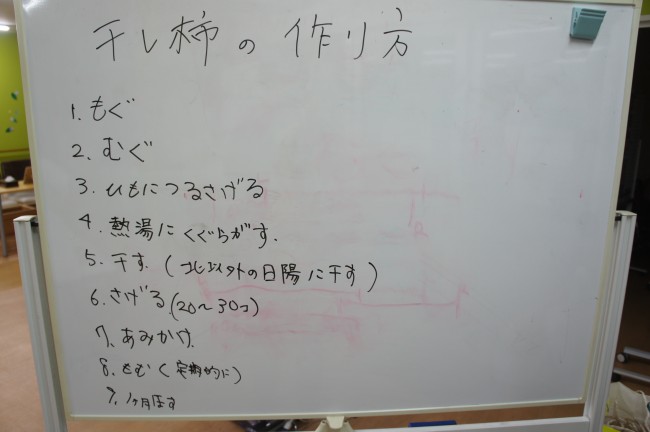 干し柿の作り方
1. もぐ
2. むぐ
3. ひもにつるさげる
4. 熱湯にくぐらがす.
5. 干す (北以外の日陽に干す)
6. さげる (20〜30コ)
7. あみかけ
8. もむ (定期的に)
9. 1ヶ月圧す